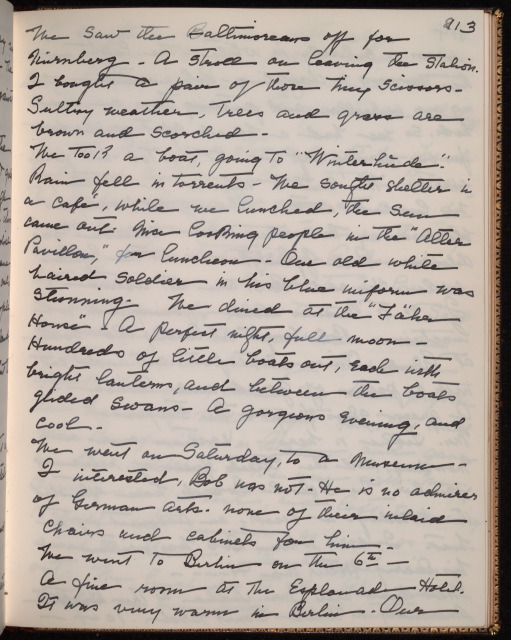 913
We saw the Baltimoreans off for
Nürnberg - A stroll on leaving the station.
I bought a pair of those tiny scissors -
Sultry weather, trees and grass are
brown and scorched -
We took a boat, going to "Winterhüde".
Rain fell in torrents - We sought shelter in
a cafe, while we lunched, the sun
came out. Nice looking people in the "Alter
Pavillon," for luncheon - One old white
haired soldier in his blue uniform was
stunning - We dined at the "Fäher
House" - A perfect night, full moon -
Hundreds of little boats out, each with
bright lanterns, and between the boats
glided swans - A gorgeous evening, and
cool -
We went on Saturday, to a Museum -
I interested, Bob was not - He is no admirer
of German arts - none of their inlaid
chairs and cabinets for him -
We went to Berlin on the 6th -
A fine room at the Esplanade Hotel.
It was very warm in Berlin - Our